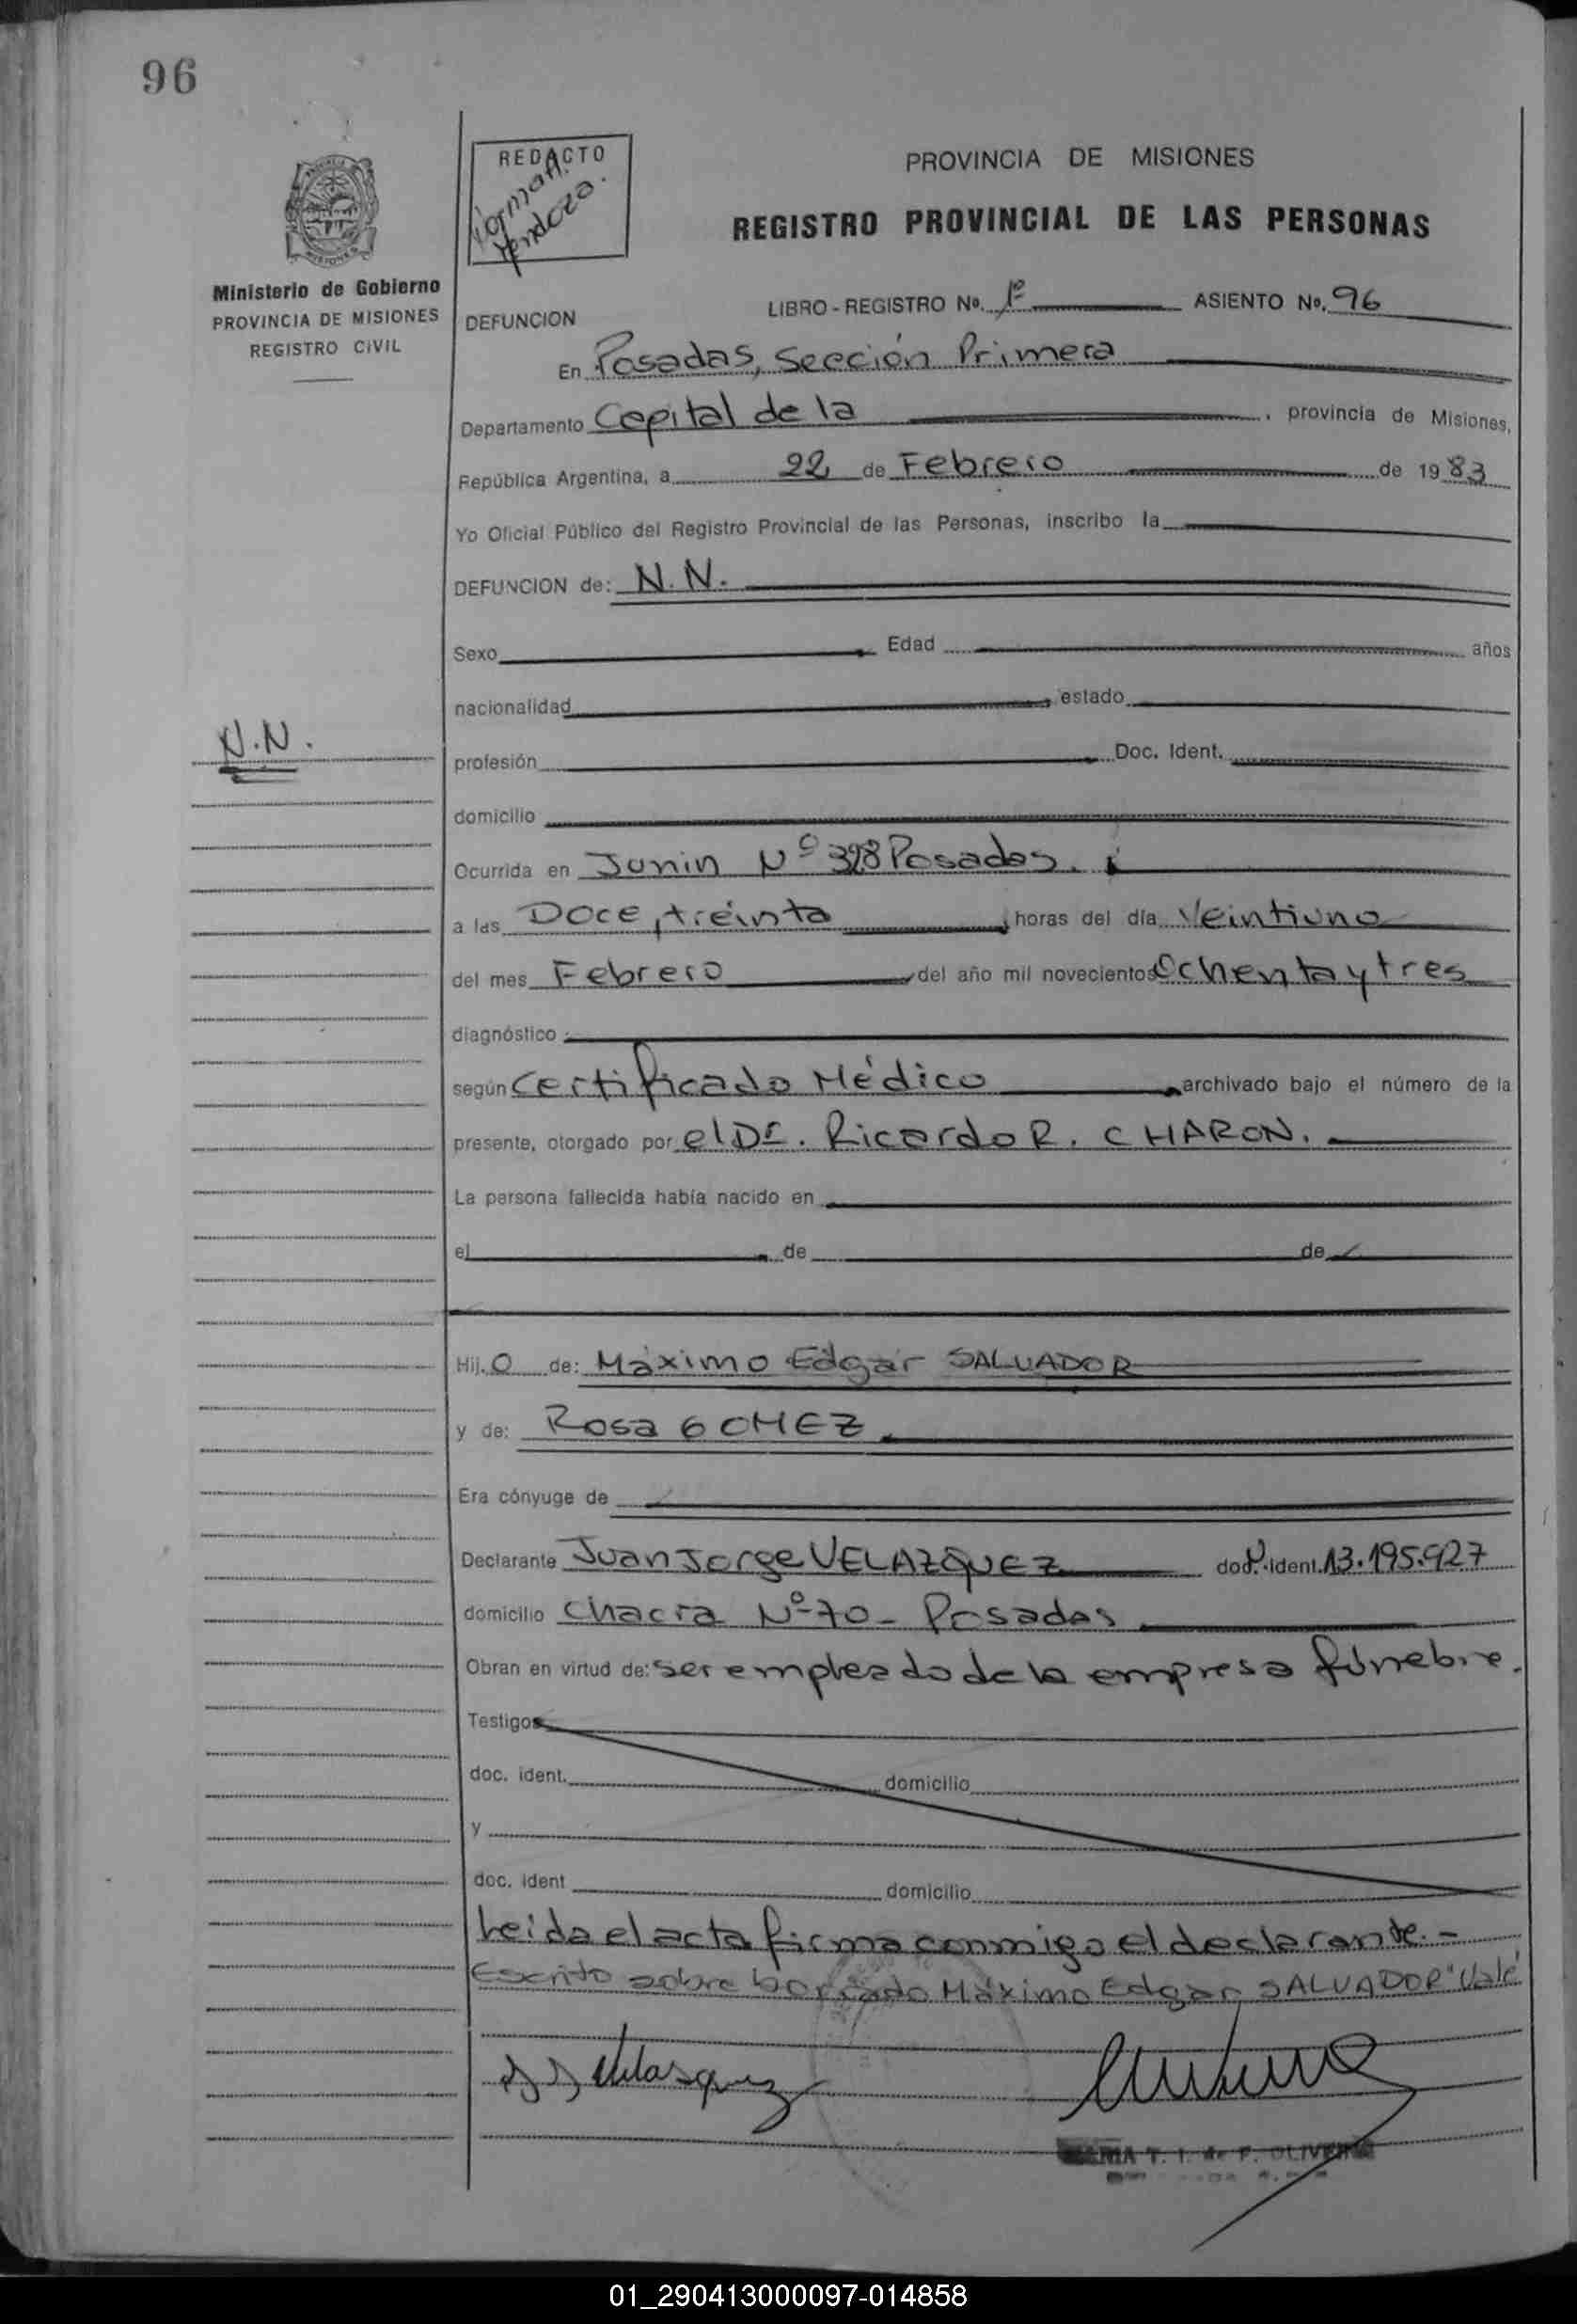 96
REDACTO
PROVINCIA DE MISIONES
REGISTRO PROVINCIAL DE LAS PERSONAS
Ministerio de Gobierno
PROVINCIA DE MISIONES
REGISTRO CIVIL
LIBRO - REGISTRO Nº. 1º ASIENTO Nº. 96
DEFUNCION
En Posadas, Sección Primera
Departamento Capital de la , provincia de Misiones,
República Argentina, a 22 de Febrero de 1983
Yo Oficial Público del Registro Provincial de las Personas, inscribo la
DEFUNCION de: N.N.
Sexo Edad años
nacionalidad estado
N.N.
profesión Doc. Ident.
domicilio
Ocurrida en Junin Nº 328 Posadas.
a las Doce, treinta horas del día Veintiuno
del mes Febrero del año mil novecientos Ochenta y tres
diagnóstico
según Certificado Médico archivado bajo el número de la
presente, otorgado por el Dr. Ricardo R. CHARON.
La persona fallecida había nacido en
el de de
Hij.o de: Máximo Edgar SALVADOR
y de: Rosa GOMEZ
Era cónyuge de
Declarante Juan Jorge VELAZQUEZ doc. ident. 13.195.927
domicilio Chacra Nº 70 - Posadas
Obran en virtud de: ser empleado de la empresa fúnebre.
Testigos
doc. ident. domicilio
y
doc. ident domicilio
Leida el acta firma conmigo el declarante.-
Escrito sobre borrado Máximo Edgar SALVADOR "Vale
J J Velasquez
MARIA T. I. de F. OLIVERA
01_290413000097-014858